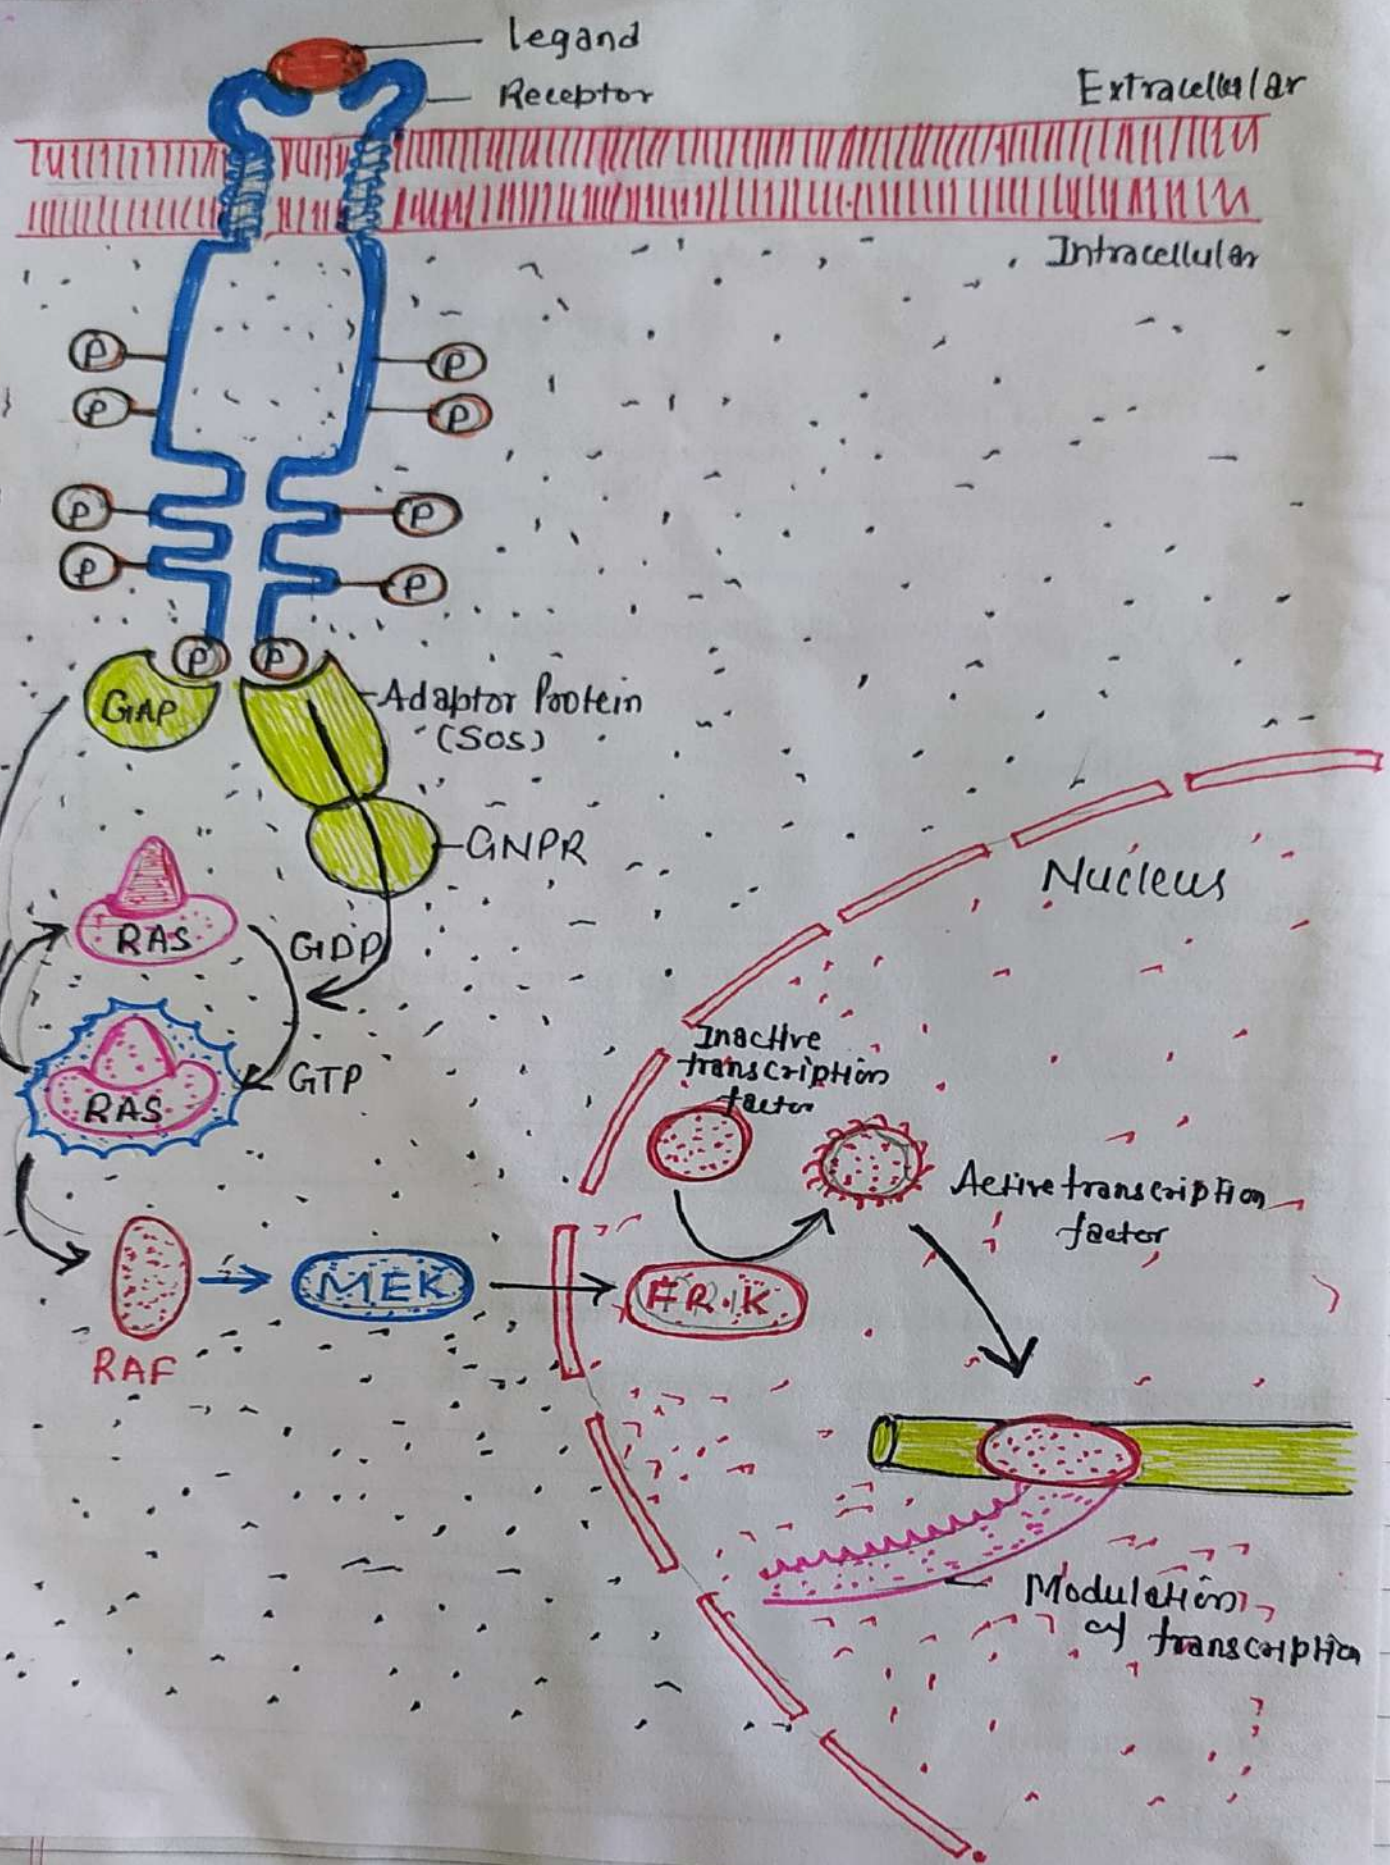 Legand
Receptor
Extracellular
Intracellular
P
P
P
P
P
P
P
P
P
P
GAP
Adaptor Protein
(SOS)
GNPR
Nucleus
RAS
GDP
RAS
GTP
Inactive
transcription
factor
Active transcription
factor
RAF
MEK
ER.K
Modulation
of transcription